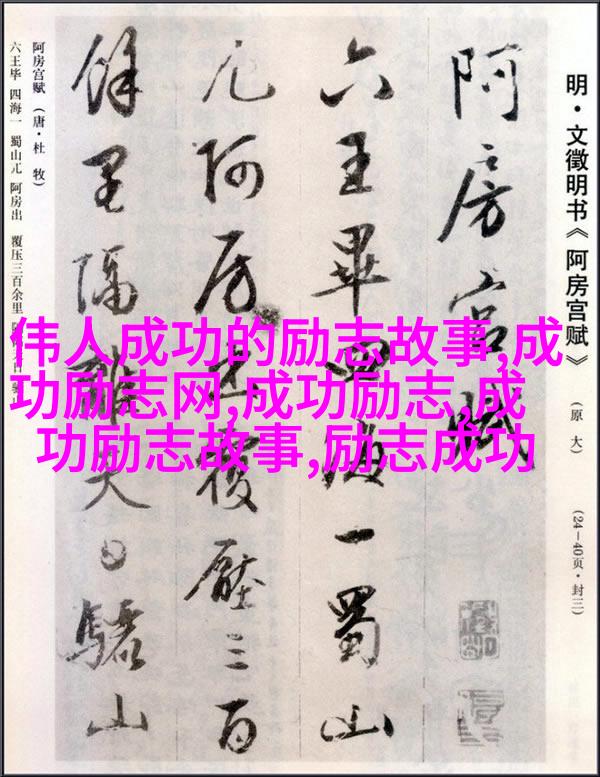 明·文徵明书《阿房宫赋》（原大）（24—40页·封三）
阿房宫赋
六王畢四海一蜀山
兀阿房出覆壓三百
餘里隔離天日驪山
阿房宫赋（唐·杜 牧）
六王毕 四海一 蜀山兀 阿房出 覆压三百余里
伟人成功的励志故事,成
功励志网,成功励志,成
功励志故事,励志成功